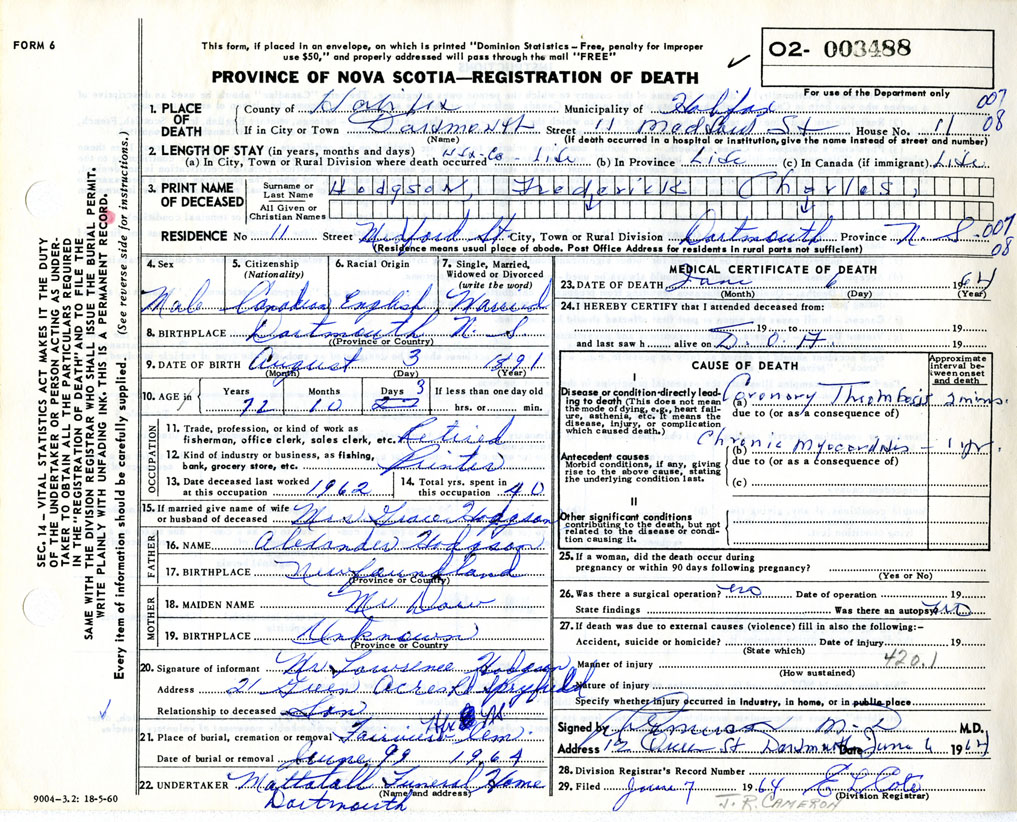 FORM 6
This form, if placed in an envelope, on which is printed "Dominion Statistics – Free, penalty for improper
use $50," and properly addressed will pass through the mail "FREE"
PROVINCE OF NOVA SCOTIA—REGISTRATION OF DEATH
02- 003488
For use of the Department only
007
08
SEC. 14 – VITAL STATISTICS ACT MAKES IT THE DUTY
OF THE UNDERTAKER OR PERSON ACTING AS UNDER-
TAKER TO OBTAIN ALL THE PARTICULARS REQUIRED
IN THE "REGISTRATION OF DEATH" AND TO FILE THE
SAME WITH THE DIVISION REGISTRAR WHO SHALL ISSUE THE BURIAL PERMIT.
WRITE PLAINLY WITH UNFADING INK. THIS IS A PERMANENT RECORD.
Every item of information should be carefully supplied. (See reverse side for instructions.)
1. PLACE OF DEATH
County of Halifax Municipality of Halifax
If in City or Town Dartmouth Street 11 St House No. 11
(Name) (If death occurred in a hospital or institution, give the name instead of street and number)
2. LENGTH OF STAY (in years, months and days)
(a) In City, Town or Rural Division where death occurred Hfx. Co - Life (b) In Province Life (c) In Canada (if immigrant) Life
3. PRINT NAME OF DECEASED
Surname or Last Name Hodgson, Frederick Charles,
All Given or Christian Names
RESIDENCE No 11 Street St. City, Town or Rural Division Dartmouth Province N. S. 007
08
(Residence means usual place of abode. Post Office Address for residents in rural parts not sufficient)
4. Sex Male
5. Citizenship (Nationality) Canadian
6. Racial Origin English
7. Single, Married, Widowed or Divorced (write the word) Married
8. BIRTHPLACE Dartmouth N S
(Province or Country)
9. DATE OF BIRTH August 3 1891
(Month) (Day) (Year)
10. AGE in Years 72 Months 10 Days 3 If less than one day old hrs. or min.
OCCUPATION
11. Trade, profession, or kind of work as fisherman, office clerk, sales clerk, etc. Retired
12. Kind of industry or business, as fishing, bank, grocery store, etc. Printer
13. Date deceased last worked at this occupation 1962
14. Total yrs. spent in this occupation 40
15. If married give name of wife or husband of deceased Mrs Grace Hodgson
FATHER
16. NAME Alexander Hodgson
17. BIRTHPLACE Newfoundland
(Province or Country)
MOTHER
18. MAIDEN NAME
19. BIRTHPLACE Unknown
(Province or Country)
20. Signature of informant Mr Lawrence Hodgson
Address 21 Green Acres Rd Spryfield
Relationship to deceased Son
21. Place of burial, cremation or removal Fairview Cem.
Date of burial or removal June 9 1964
22. UNDERTAKER Mattatall Funeral Home
(Name and address)
Dartmouth
9004–3.2: 18-5-60
MEDICAL CERTIFICATE OF DEATH
23. DATE OF DEATH June 6 1964
(Month) (Day) (Year)
24. I HEREBY CERTIFY that I attended deceased from:
19 to 19
and last saw h alive on D. O. A. 19
CAUSE OF DEATH
Approximate interval between onset and death
I
Disease or condition directly leading to death (This does not mean the mode of dying, e.g., heart failure, asthenia, etc. It means the disease, injury, or complication which caused death.)
(a) Coronary Thrombosis 2 mins.
due to (or as a consequence of)
Antecedent causes
Morbid conditions, if any, giving rise to the above cause, stating the underlying condition last.
(b) Chronic myocarditis – 1 yr.
due to (or as a consequence of)
(c)
II
Other significant conditions
contributing to the death, but not related to the disease or condition causing it.
25. If a woman, did the death occur during
pregnancy or within 90 days following pregnancy?
(Yes or No)
26. Was there a surgical operation? no Date of operation 19
State findings Was there an autopsy? no
27. If death was due to external causes (violence) fill in also the following:–
Accident, suicide or homicide? Date of injury 19
(State which)
420.1
Manner of injury
(How sustained)
Nature of injury
Specify whether injury occurred in industry, in home, or in public place
Signed by M.D. M.D.
Address St Dartmouth Date June 6 1964
28. Division Registrar's Record Number
29. Filed June 7 1964
(Division Registrar)
J. R. CAMERON